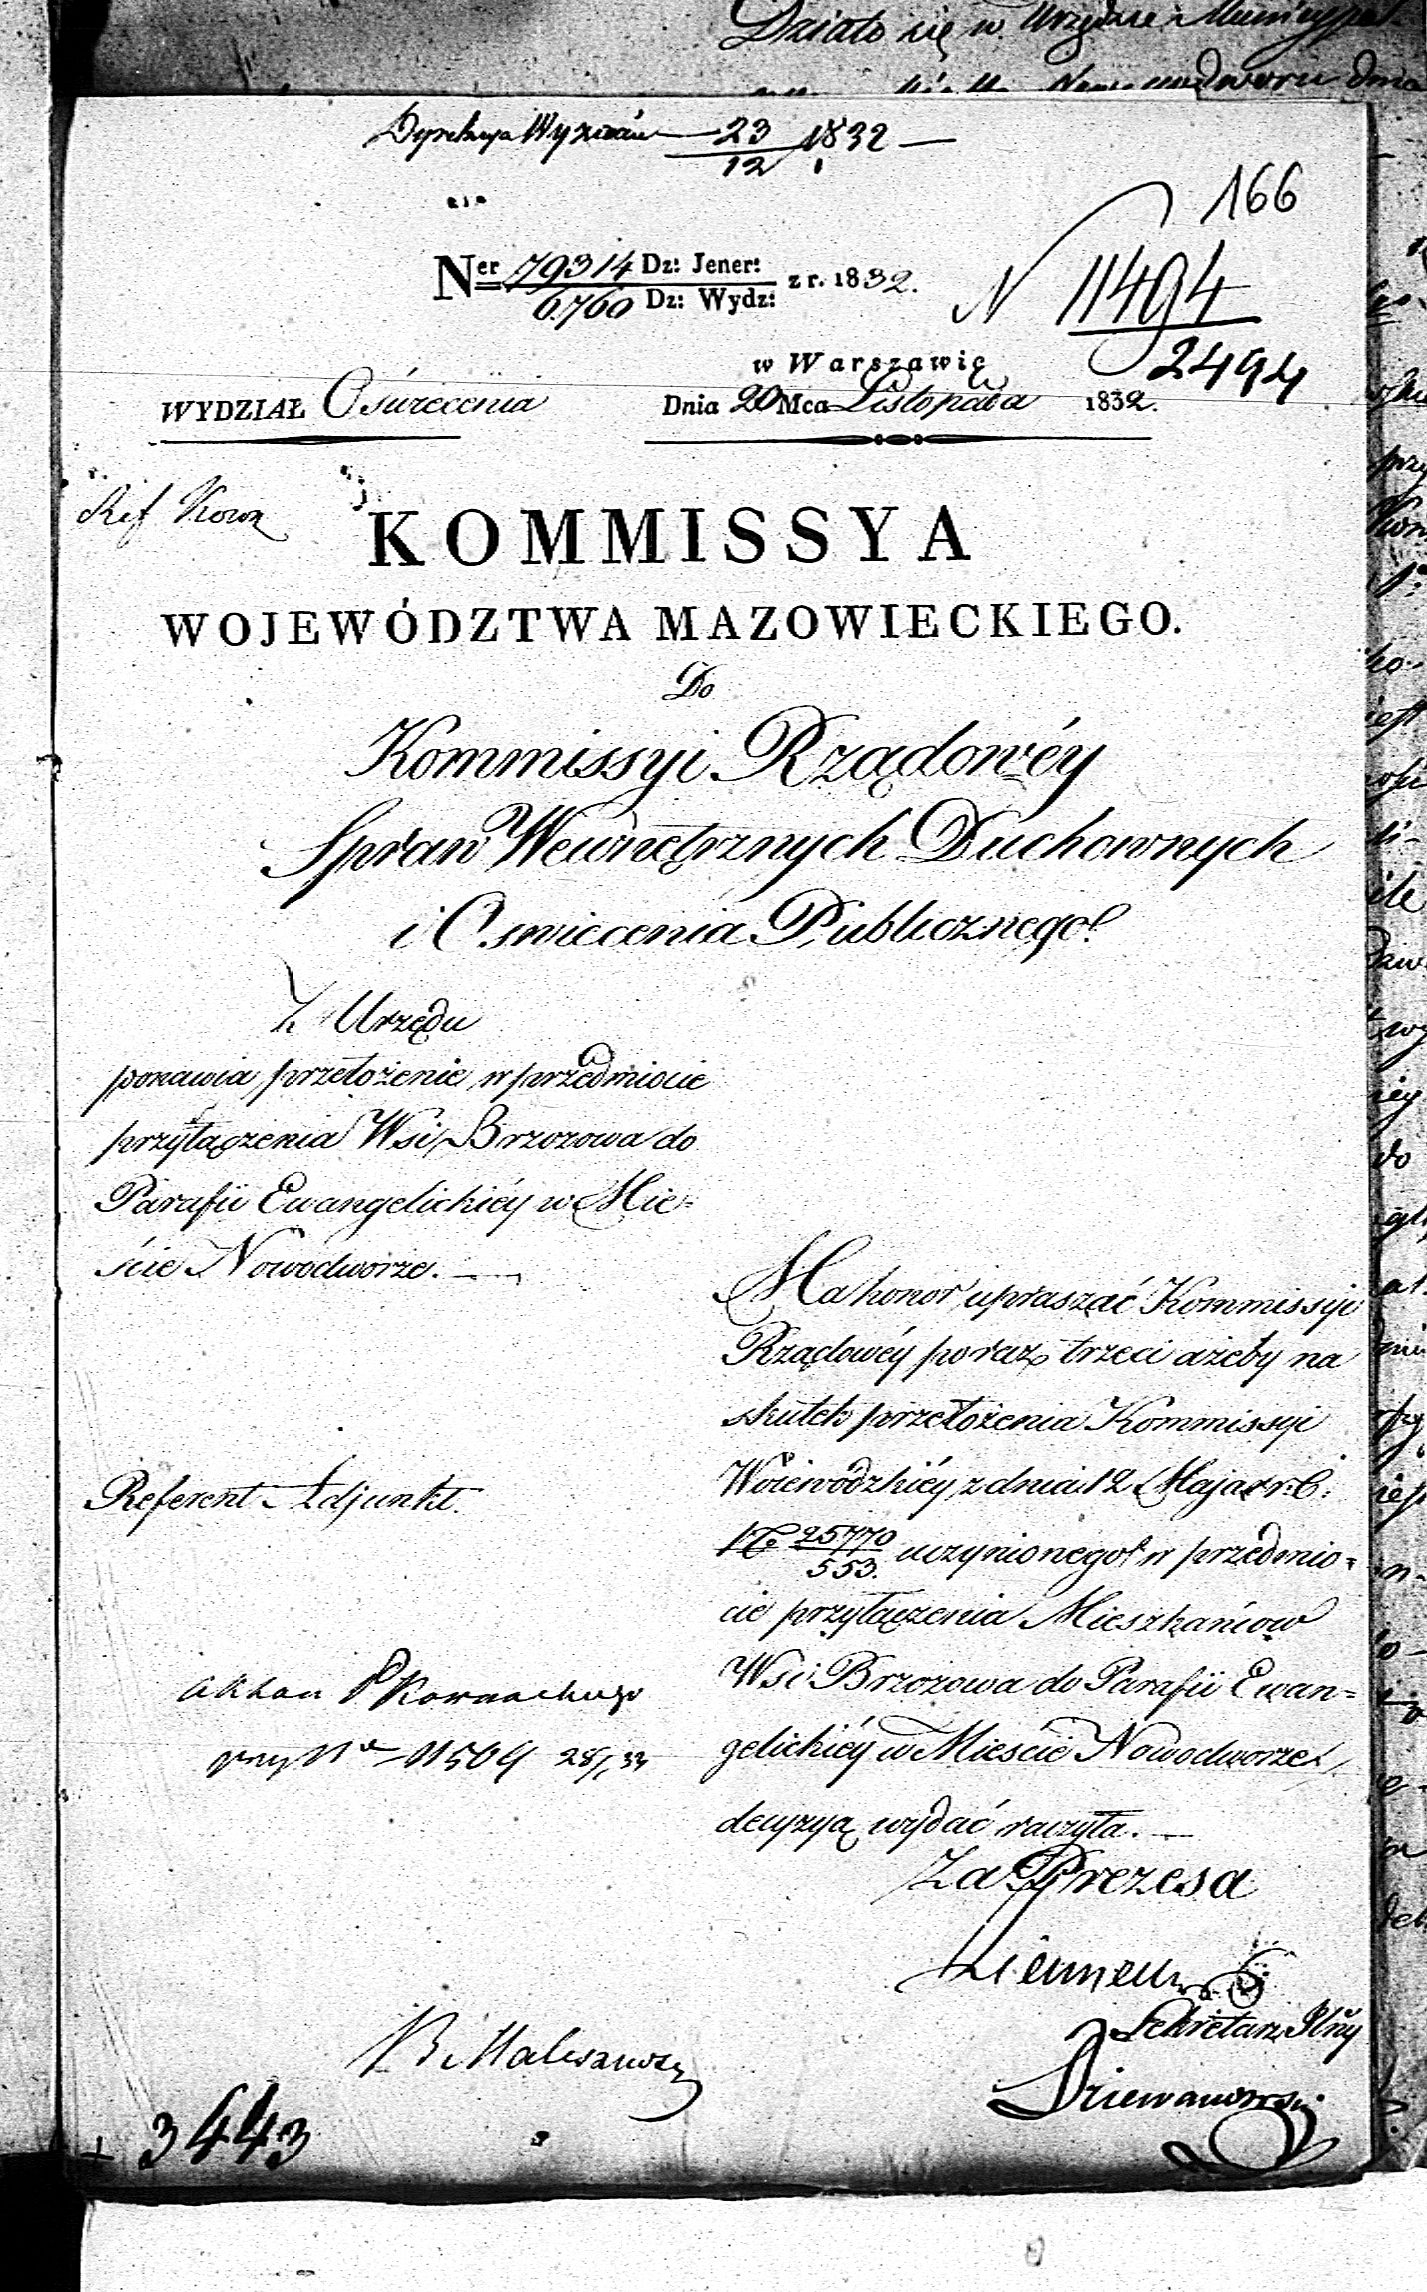 Działo się w Urzędzie Municypal
Nowymdworu dnia
Dyrekcya Wyznań 23/12 1832
166
Ner 79314 Dz: Jener: z r. 1832.
6760 Dz: Wydz:
N 11494
2494
w Warszawie
WYDZIAŁ Oświecenia Dnia 20 Mca Listopada 1832.
Ref
KOMMISSYA
WOJEWÓDZTWA MAZOWIECKIEGO.
Do
Kommissyi Rządowéy
Spraw Wewnętrznych Duchownych
i Oswiecenia Publicznego.
Z Urzędu
ponawia przełożenie w przedmiocie
przyłączenia Wsi Brzozowa do
Parafii Ewangelickiéy w Mie=
ście Nowodworze.
Ma honor upraszać Kommissyi
Rządowéy po raz trzeci ażeby na
skutek przełożenia Kommissyi
Woiewódzkiéy z dnia 12 Maja r: b:
No 25770/553. uczynionego w przedmio=
cie przyłączenia Mieszkańców
Wsi Brzozowa do Parafii Ewan=
gelickiéy w Mieście Nowodworze,
decyzyą wydać raczyła.
Referent Adjunkt.
przy Nr 11504 28/1 33
Za Prezesa
Sekretarz Jlny
Dziewanowski
3443